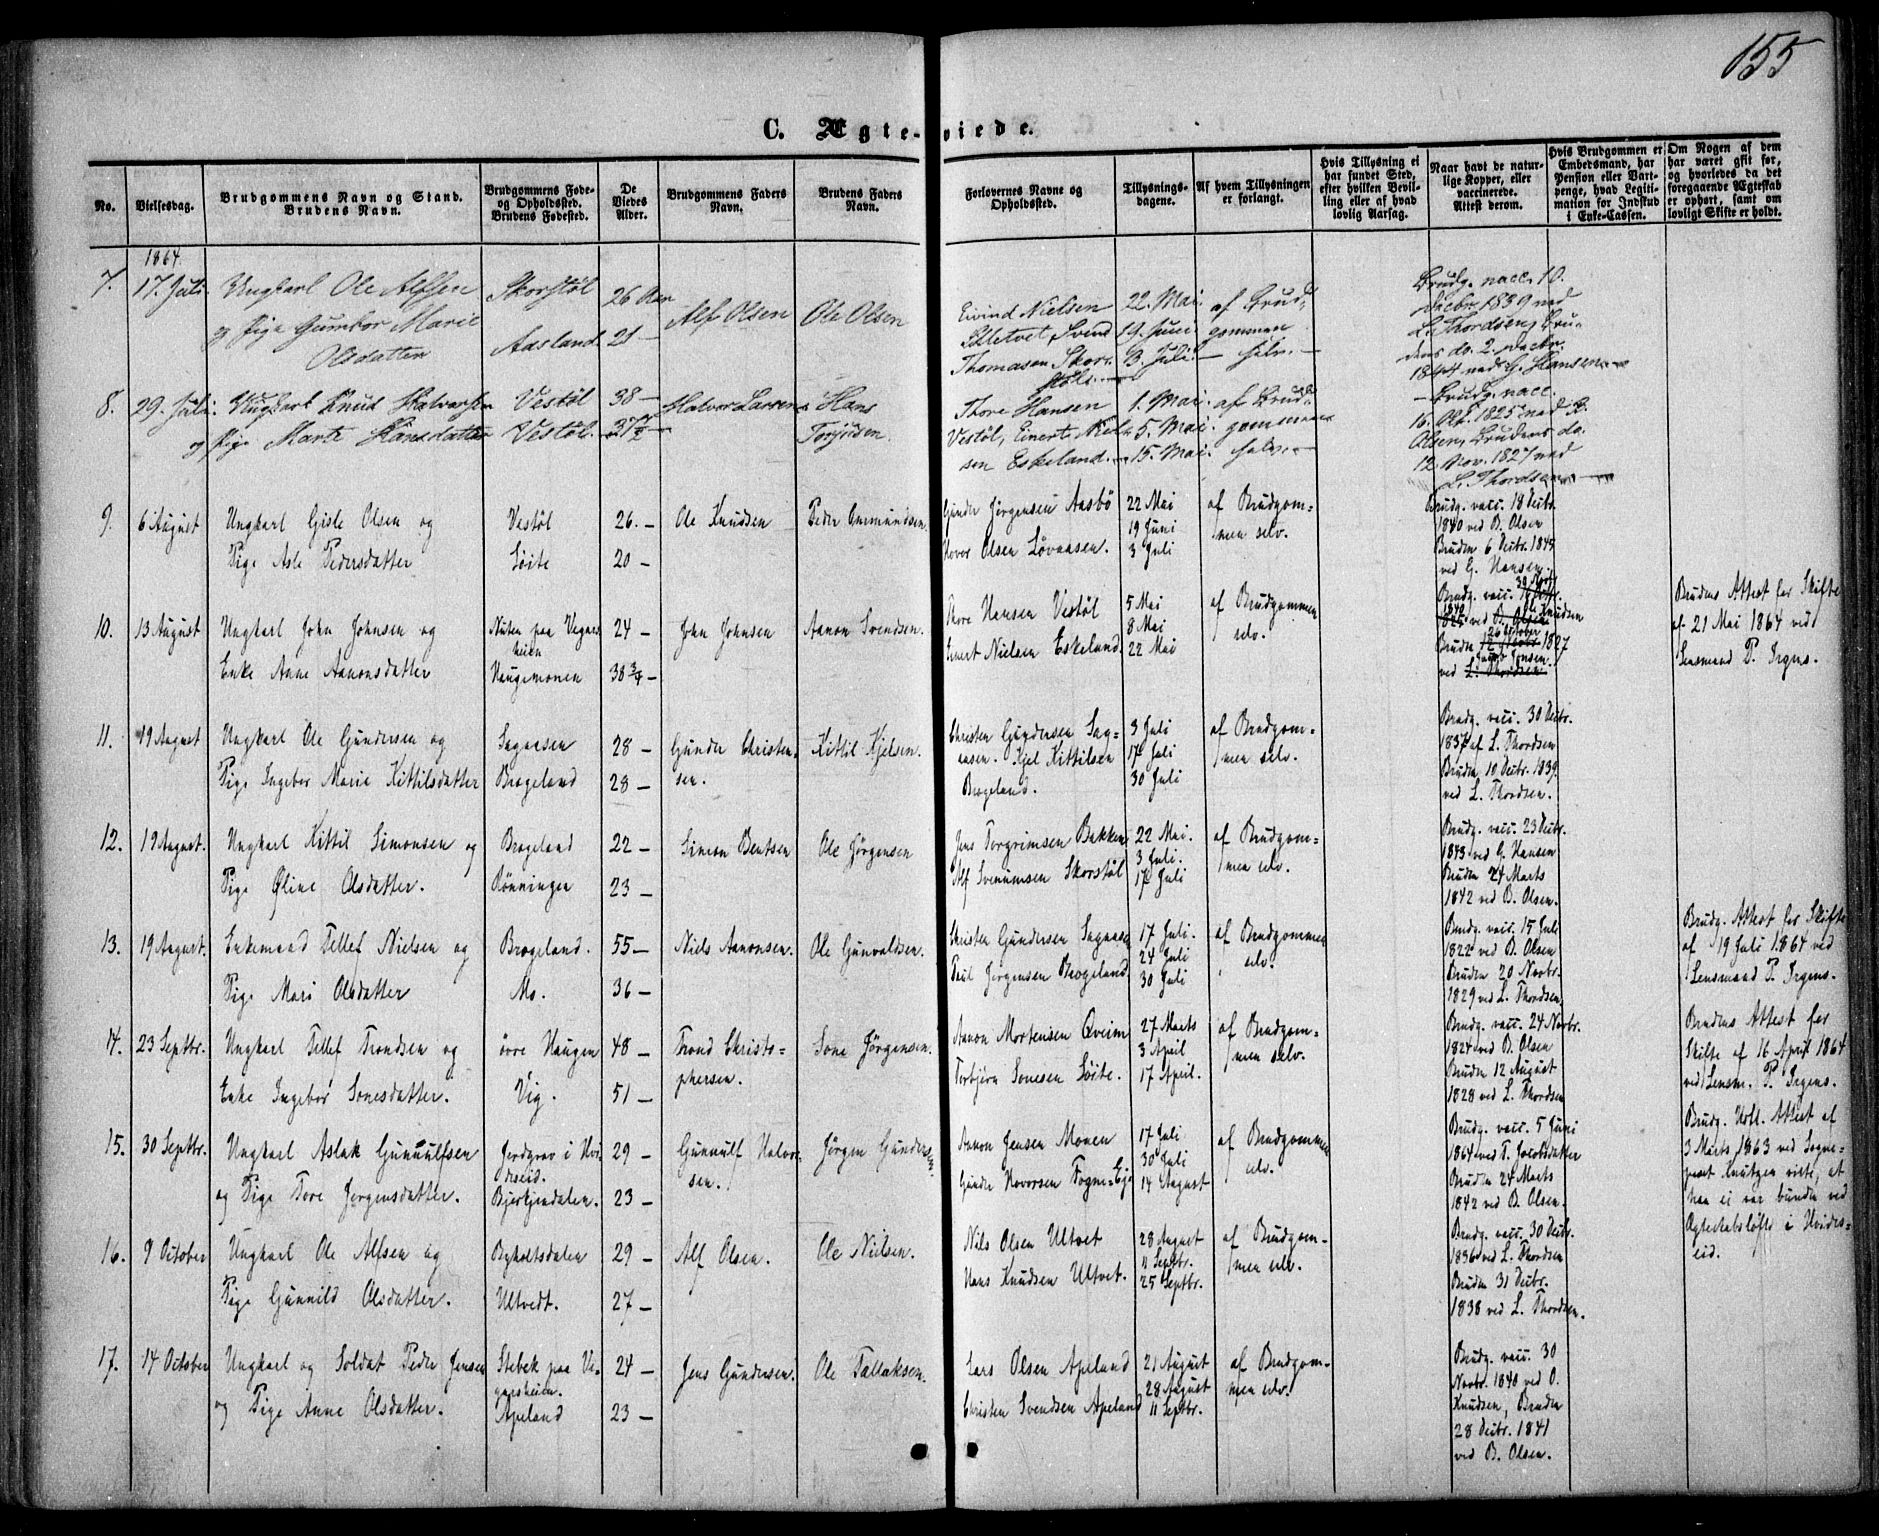 155
C. Ægte-viede.
No.
Vielsesdag.
Brudgommens Navn og Stand.
Brudens Navn.
Brudgommens Føde-
og Opholdssted.
Brudens Fødested.
De
Viedes
Alder.
Brudgommens Faders
Navn.
Brudens Faders
Navn.
Forlovernes Navne og
Opholdssted.
Tillysnings-
dagene.
Af hvem Tillysningen
er forlangt.
Hvis Tillysning ei
har fundet Sted,
efter hvilken Bevil-
ling eller af hvad
lovlig Aarsag.
Naar havt de natur-
lige Kopper, eller
vaccinerede.
Attest derom.
Hvis Brudgommen er
Embedsmand, har
Pension eller Vart-
penge, hvad Legiti-
mation for Indskud
i Enke-Cassen.
Om Nogen af dem
har været gift før,
og hvorledes da det
foregaaende Ægteskab
er ophørt, samt om
lovligt Skifte er holdt.
1864
7. 17. Juli. Ungkarl Ole Alfsen Skorstøl 26 Aar Alf Olsen Ole Olsen
og Pige Gumbor Marie Aasland 21 —
Olsdatter
Eivind Nielsen 22. Mai. af Brud-
Svend 19. Juni gommen
Thomasen Skor- 3. Juli. — selv. —
støl. —
Brudg. vacc. 10.
Decbr 1839 ved
L. Thordsen, Bru-
dens do. 2. Decbr.
1844 ved G. Hansen. —
8. 29. Juli. Ungkarl Knud Halvorsen Vestøl 38 — Halvor Larsen Hans
og Pige Marte Hansdatter Vestøl. 37½ — Torjusen.
Thore Hansen 1. Mai. af Brud-
Vestøl, Einert Niel- 5. Mai. gommen
sen Eskeland. — 15. Mai. selv. —
— Brudg. vacc.
16. Okt. 1825 ved B.
Olsen, Brudens do.
12 Nov. 1827 ved
L. Thordsen —
9. 6 August Ungkarl Gisle Olsen og Vestøl 26. — Ole Knudsen Peder Ommundsen.
Pige Asle Pedersdatter Søite 20 —
Gunder Jørgensen Aasbø 22 Mai af Brudgom-
Hover Olsen Løvaasen. 19 Juni men selv.
3 Juli
Brudg. vacc. 18 Decbr.
1840 ved B. Olsen
Bruden 6 Decbr. 1845
ved G. Hansen.
10. 13 August Ungkarl John Johnsen og Nuten paa Vegars- 24 — John Johnsen Aanon Svendsen.
heien
Enke Anne Aanonsdatter Haugemonen 38 3/4 —
Thore Hansen Vestøl 5 Mai af Brudgommen
8 Mai selv.
Einert Nielsen Eskeland. 22 Mai
Brudg. vacc.
1840
1825 ved B. Olsen Knudsen
26 October
Bruden 12 Novbr. 1827
Jacob Jensen.
ved L. Thordsen
Brudens Attest for Skifte
af 21 Mai 1864 ved
Lensmand P. Irgens.
11. 19 August Ungkarl Ole Gundersen og Sagaasen 28 — Gunder Christen- Kittil Kjelsen.
Pige Ingebor Marie Kittilsdatter Brogeland 28 — sen.
Christen Gundersen Sag- 3 Juli af Brudgom-
aasen. Kjel Kittilsen 17 Juli men selv.
Brogeland. 30 Juli
Brudg. vacc. 30 Decbr.
1837 af L. Thordsen
Bruden 10 Decbr. 1839
ved L. Thordsen.
12. 19 August. Ungkarl Kittil Simonsen og Brogeland 22 — Simon Bentsen Ole Jörgensen
Pige Oline Olsdatter. Rönningen 23 —
Jens Torgrimsen Bakken 22 Mai. af Brudgom-
3 Juli. men selv.
Alf Svenumsen Skorstøl 17 Juli
Brudg. vacc. 23 Decbr.
1843 ved G. Hansen
Bruden 24 Marts
1842 ved B. Olsen.
13. 19 August. Enkemand Tellef Nielsen og Brogeland. 55 — Niels Aanonsen. Ole Gunvaldsen.
Pige Mari Olsdatter Mo. 36 —
Christen Gundersen Sagaasen 17 Juli. af Brudgommen
24 Juli selv.
Poul Jørgensen Brogeland 30 Juli
Brudg. vacc. 15 Juli
1822 ved B. Olsen
Bruden 20 Novbr.
1829 ved L. Thordsen
Brudg. Attest for Skifte
af 19 Juli 1864 ved
Lensmand P. Irgens.
14. 23 Septbr. Ungkarl Tellef Trondsen og övre Haugen 48 — Trond Christo- Sone Jörgensen.
phersen.
Enke Ingebor Sonesdatter. Vig. 51 —
Aanon Mortensen Qveim 27 Marts af Brudgom-
3 April men selv.
Torbjörn Sonesen Søite. 17 April.
Brudg. vacc. 24 Novbr.
1824 ved B. Olsen
Bruden 12 August
1828 ved L. Thordsen
Brudens Attest for
Skifte af 16 April 1864
ved Lensm. P. Irgens.
15. 30 Septbr. Ungkarl Aslak Gunnulfsen Jordgrav i Hvi- 29 — Gunnulf Halvor- Jörgen Gundersen
deseid. sen.
og Pige Tore Jørgensdatter. Bjerkjendalen. 23 —
Aanon Jensen Monen 17 Juli af Brudgommen
30 Juli selv.
Gunder Hovorsen Fogne-Eje 14 August
Brudg. vacc. 5 Juni
1864 ved T. Jacobsdatter
Bruden 24 Marts
1842 ved B. Olsen.
Brudg. Attest af
3 Marts 1863 ved Sogne-
præst Knutzen viste, at
han ei var bunden ved
Egteskabsløfte i Hvides-
eid.
16. 9 October Ungkarl Ole Alfsen og Bykoltsdalen 29 — Alf Olsen. Ole Nielsen.
Pige Gunnild Olsdatter. Ultvedt. 27 —
Nils Olsen Ultvet 28 August af Brudgom-
11 Septbr. men selv.
Hans Knudsen Ultvet. 25 Septbr.
Brudg. vacc. 30 Decbr.
1836 ved L. Thordsen
Bruden 31 Decbr.
1838 ved L. Thordsen.
17. 14 October Ungkarl og Soldat Peder Jensen Stebek paa Ve- 24 — Jens Gundersen. Ole Tallaksen.
garsheien.
og Pige Anne Olsdatter. Apeland 23 —
Lars Olsen Apeland 21 August af Brudgom-
28 August men selv.
Christen Svendsen Apeland 11 Septbr.
Brudg. vacc. 30
Novbr. 1840 ved O.
Knudsen, Bruden
28 Decbr. 1841
ved B. Olsen.